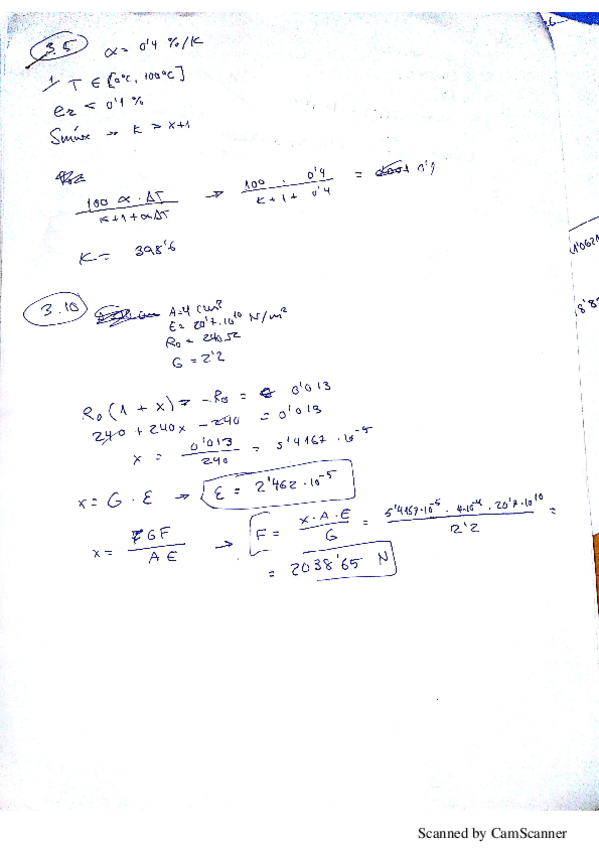 3.5 α = 0'4 %/K
1/ T ∈ [0ºC, 100ºC]
er < 0'1 %
Smáx → K > x+1
100 α · ΔT / K+1+αΔT → 100 · 0'4 / K+1+ 0'4 = 0'1
K = 398'6
3.10 A=4 cm²
E= 20'7·10¹⁰ N/m²
Ro = 240Ω
G = 2'2
Ro (1 + x) - Ro = 0'013
240 + 240x - 240 = 0'013
x = 0'013 / 240 = 5'4167 · 10⁻⁵
x = G · ε → ε = 2'462 · 10⁻⁵
x = GF / AE → F = x·A·E / G = 5'4167·10⁻⁵ · 4·10⁻⁴ · 20'7·10¹⁰ / 2'2 =
= 2038'65 N
Scanned by CamScanner